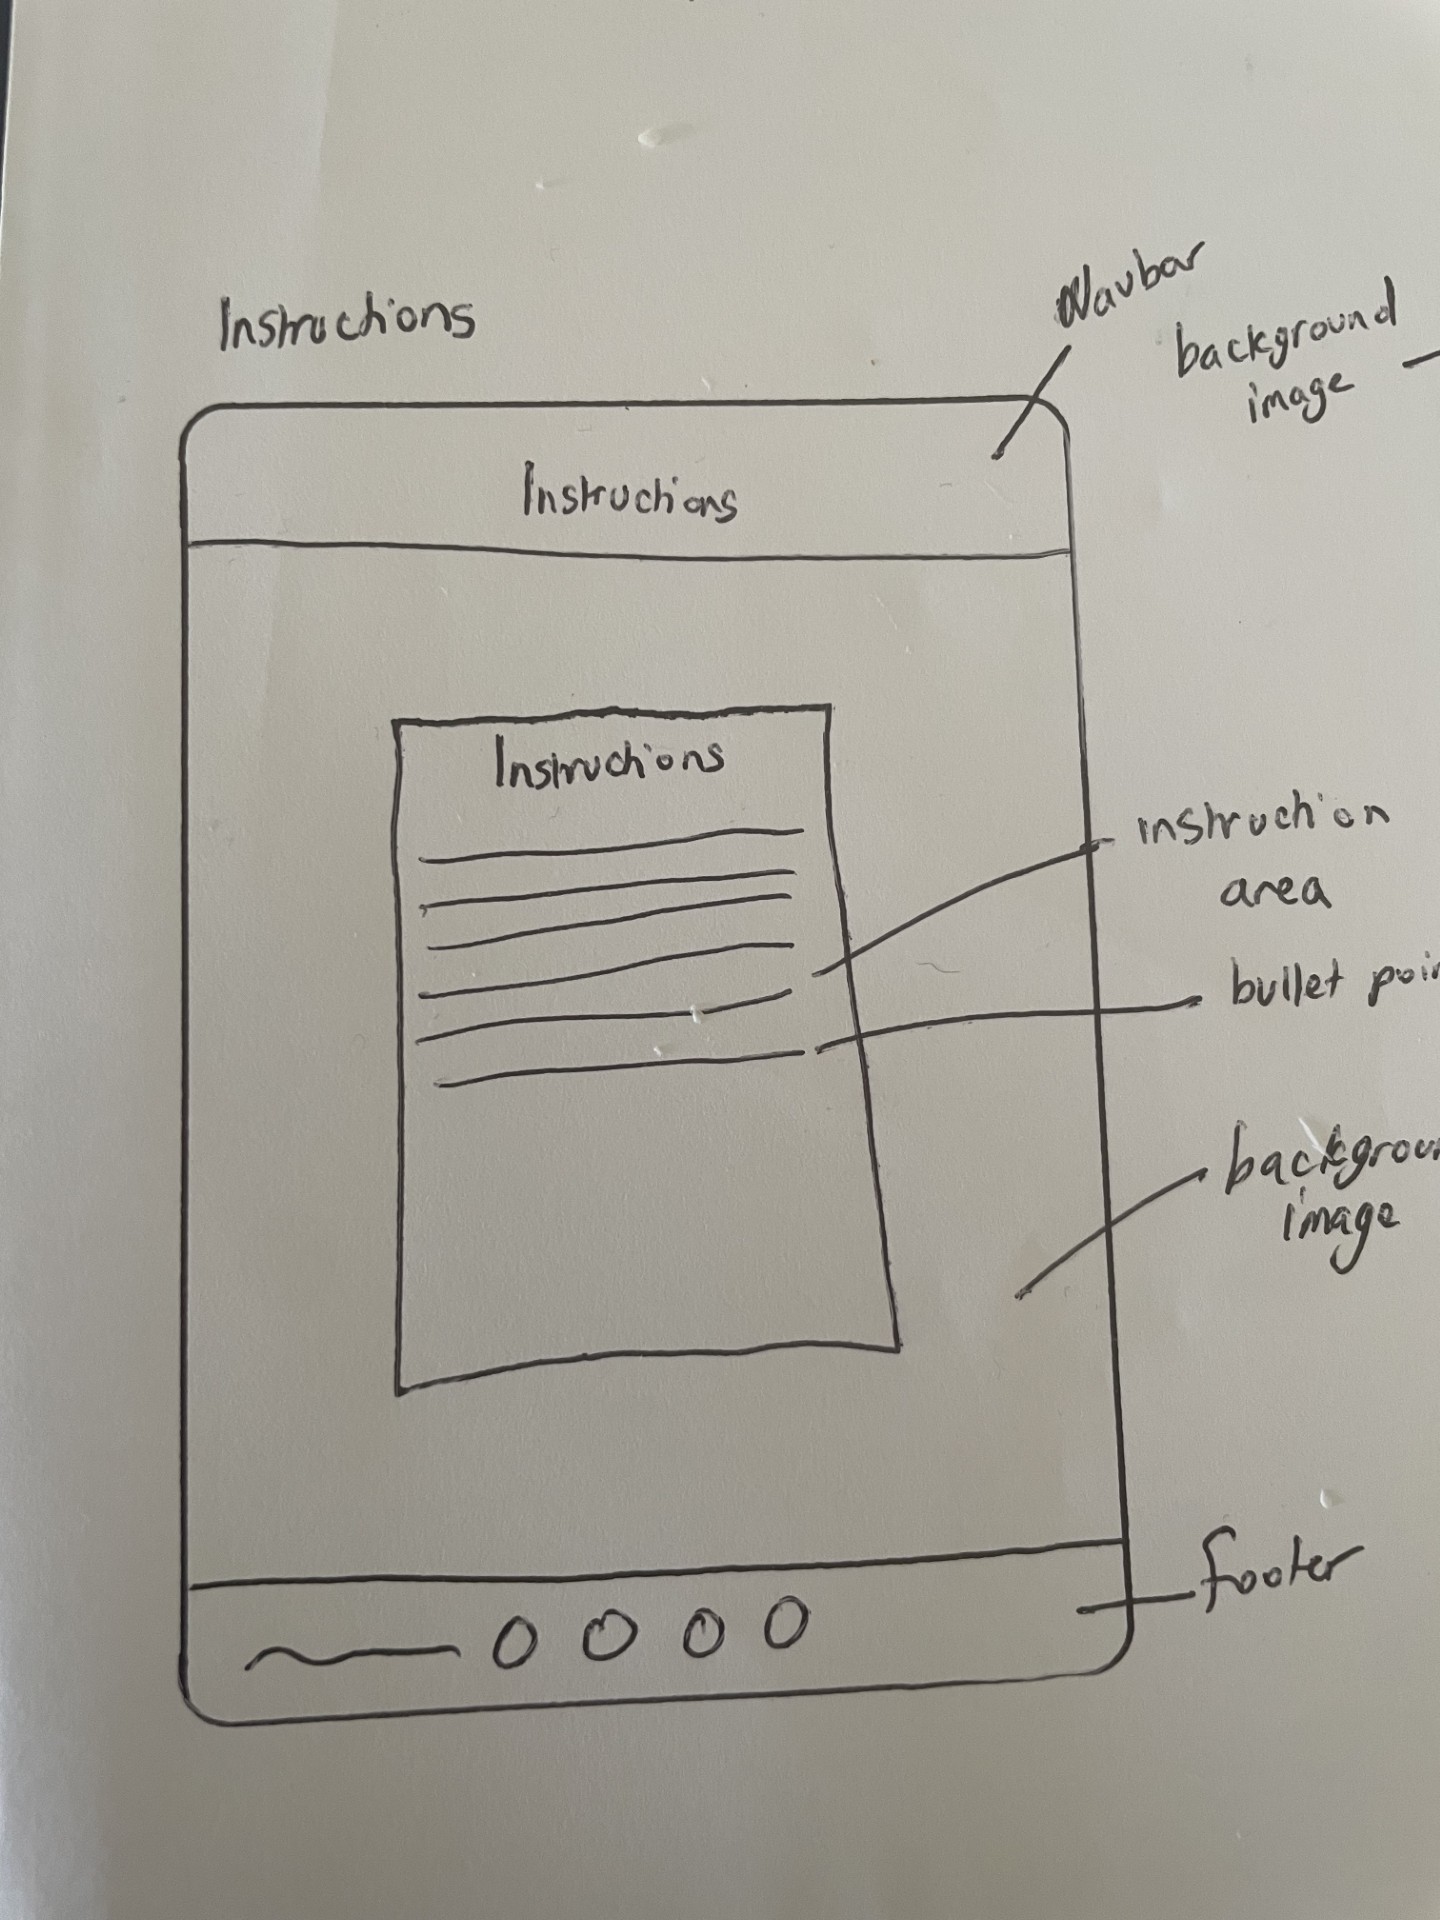 Instructions
Navbar
background
image
Instructions
Instructions
instruction
area
bullet poin
backgroun
image
footer